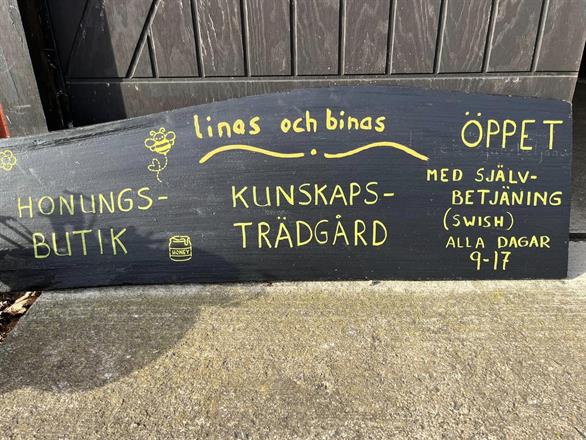 linas och binas
HONUNGS-
BUTIK
HONEY
KUNSKAPS-
TRÄDGÅRD
ÖPPET
MED SJÄLV-
BETJÄNING
(SWISH)
ALLA DAGAR
9-17